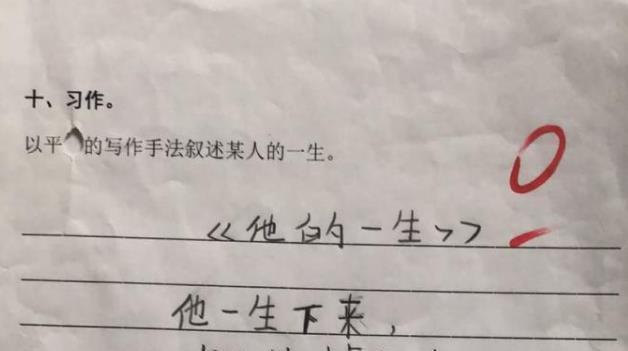 十、习作。
以平 的写作手法叙述某人的一生。
0
《他的一生》
他一生下来，